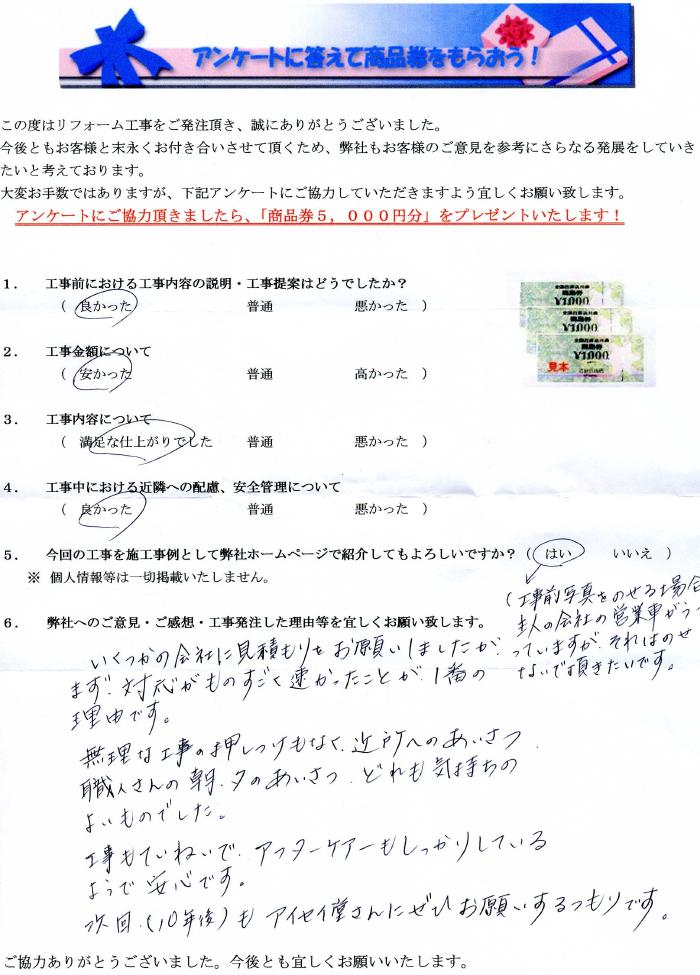 アンケートに答えて商品券をもらおう！
この度はリフォーム工事をご発注頂き、誠にありがとうございました。
今後ともお客様と末永くお付き合いさせて頂くため、弊社もお客様のご意見を参考にさらなる発展をしていき
たいと考えております。
大変お手数ではありますが、下記アンケートにご協力していただきますよう宜しくお願い致します。
アンケートにご協力頂きましたら、「商品券５，０００円分」をプレゼントいたします！
１． 工事前における工事内容の説明・工事提案はどうでしたか？
（ 良かった 普通 悪かった ）
２． 工事金額について
（ 安かった 普通 高かった ）
３． 工事内容について
（ 満足な仕上がりでした 普通 悪かった ）
４． 工事中における近隣への配慮、安全管理について
（ 良かった 普通 悪かった ）
商品券
¥1,000
商品券
¥1,000
商品券
¥1,000
見本
５． 今回の工事を施工事例として弊社ホームページで紹介してもよろしいですか？（ はい いいえ ）
※ 個人情報等は一切掲載いたしません。
（工事前写真をのせる場合
主人の会社の営業車がうつ
っていますが、それはのせ
ないで頂きたいです。
６． 弊社へのご意見・ご感想・工事発注した理由等を宜しくお願い致します。
いくつかの会社に見積もりをお願いしましたが、
まず、対応がものすごく速かったことが、1番の
理由です。
無理な工事の押しつけもなく、近所へのあいさつ、
職人さんの朝、夕のあいさつ、どれも気持ちの
よいものでした。
工事もていねいで、アフターケアーもしっかりしている
ようで安心です。
次回、（10年後）も アイセイ堂さんにぜひお願いするつもりです。
ご協力ありがとうございました。今後とも宜しくお願いいたします。